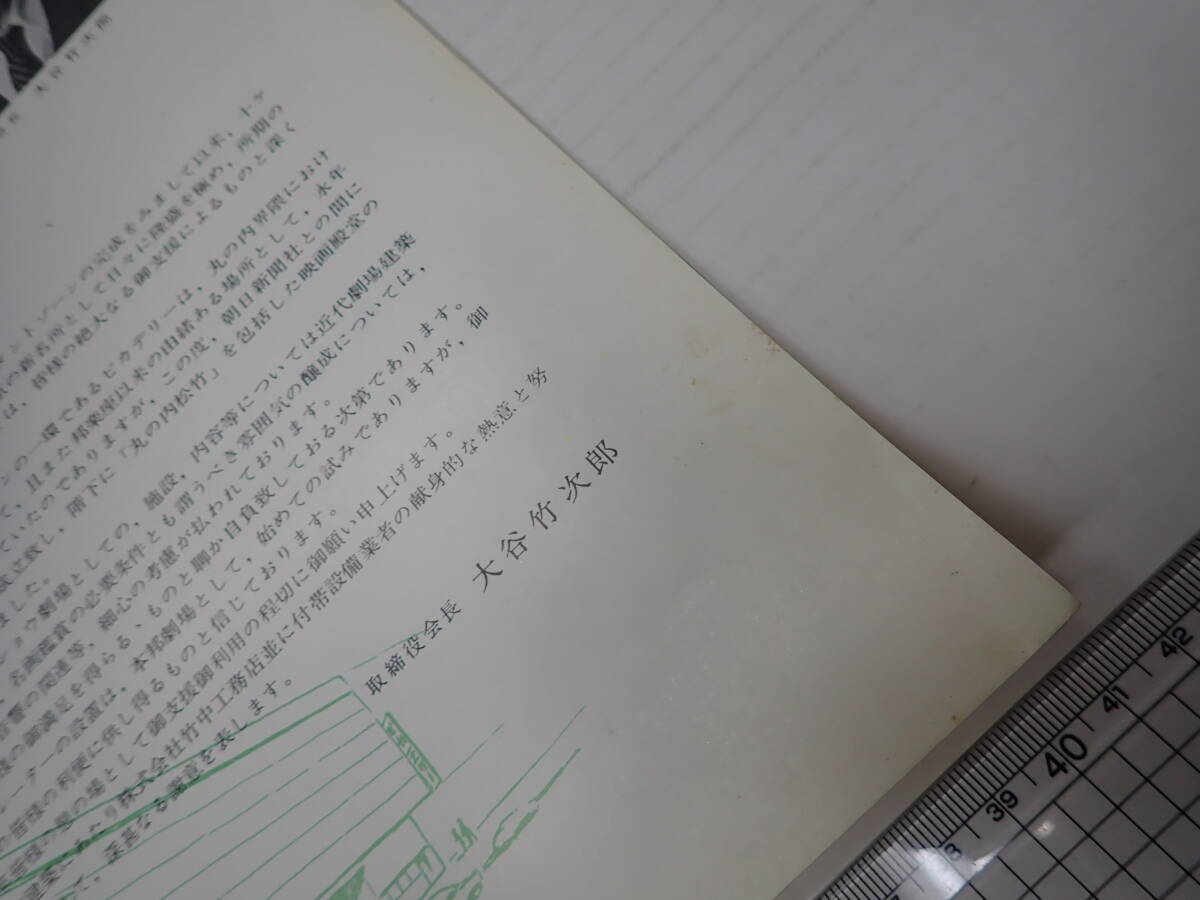 大谷竹次郎
ントゾーンの完成をみまして以来，十ケ
の新名所として日々に隆盛を極め，所期の
は，皆様の絶大なる御支援によるものと深く
ンの一環であるピカデリーは，丸の内界隈におけ
て，且また邦楽座以来の由緒ある場所として，永年
ていたのでありますが，この度，朝日新聞社との間に
成立致し，階下に「丸の内松竹」を包括した映画殿堂の
ました。
ショウ劇場としての，施設，内容等については近代劇場建築
，名画鑑賞の必要条件とも謂うべき雰囲気の醸成については，
音響の関連等，細心の考慮が払われております。
様の御満足を得らる、ものと聊か自負致しておる次第であります。
レーターの設置は，本邦劇場として，始めての試みでありますが，御
の皆様の利便に供し得るものと信じております。
皆様の憩の場として御支援御利用の程切に御願い申上げます。
建築にあたり株式会社竹中工務店並に付帯設備業者の献身的な熱意と努
て，深甚なる謝意を表します。
取締役会長 大谷竹次郎
39
40
41
42